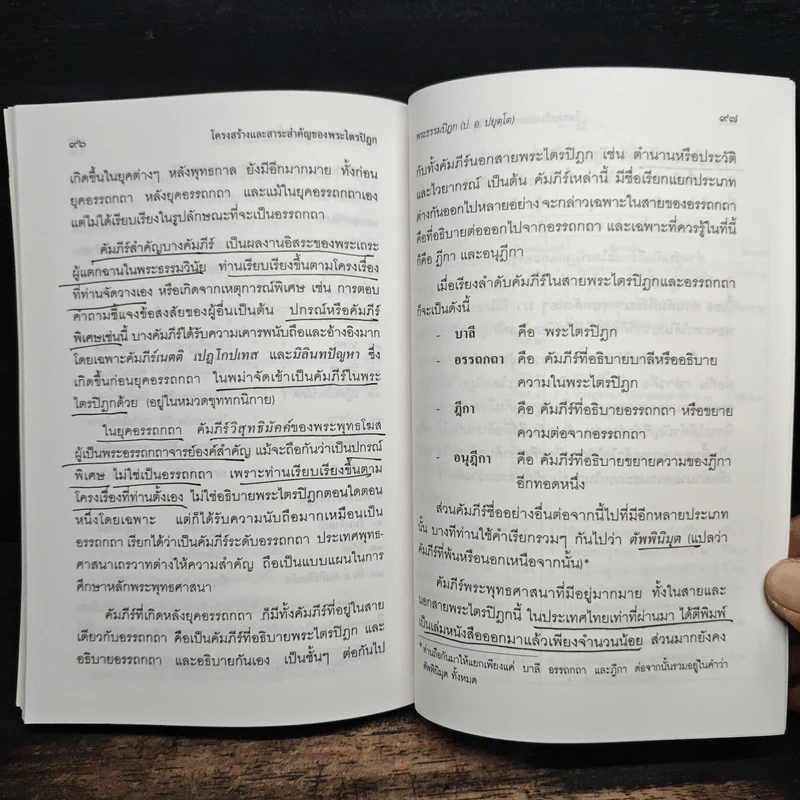 ๙๖
โครงสร้างและสาระสำคัญของพระไตรปิฎก
เกิดขึ้นในยุคต่างๆ หลังพุทธกาล ยังมีอีกมากมาย ทั้งก่อน
ยุคอรรถกถา หลังยุคอรรถกถา และแม้ในยุคอรรถกถาเอง
แต่ไม่ได้เรียบเรียงในรูปลักษณะที่จะเป็นอรรถกถา
คัมภีร์สำคัญบางคัมภีร์ เป็นผลงานอิสระของพระเถระ
ผู้แตกฉานในพระธรรมวินัย ท่านเรียบเรียงขึ้นตามโครงเรื่อง
ที่ท่านจัดวางเอง หรือเกิดจากเหตุการณ์พิเศษ เช่น การตอบ
คำถามชี้แจงข้อสงสัยของผู้อื่นเป็นต้น ปกรณ์หรือคัมภีร์
พิเศษเช่นนี้ บางคัมภีร์ได้รับความเคารพนับถือและอ้างอิงมาก
โดยเฉพาะคัมภีร์เนตติ เปฏโกปเทส และมิลินทปัญหา ซึ่ง
เกิดขึ้นก่อนยุคอรรถกถา ในพม่าจัดเข้าเป็นคัมภีร์ในพระ
ไตรปิฎกด้วย (อยู่ในหมวดขุททกนิกาย)
ในยุคอรรถกถา คัมภีร์วิสุทธิมัคค์ของพระพุทธโฆส
ผู้เป็นพระอรรถกถาจารย์องค์สำคัญ แม้จะถือกันว่าเป็นปกรณ์
พิเศษ ไม่ใช่เป็นอรรถกถา เพราะท่านเรียบเรียงขึ้นตาม
โครงเรื่องที่ท่านตั้งเอง ไม่ใช่อธิบายพระไตรปิฎกตอนใดตอน
หนึ่งโดยเฉพาะ แต่ก็ได้รับความนับถือมากเหมือนเป็น
อรรถกถา เรียกได้ว่าเป็นคัมภีร์ระดับอรรถกถา ประเทศพุทธ-
ศาสนาเถรวาทต่างให้ความสำคัญ ถือเป็นแบบแผนในการ
ศึกษาหลักพระพุทธศาสนา
คัมภีร์ที่เกิดหลังยุคอรรถกถา ก็มีทั้งคัมภีร์ที่อยู่ในสาย
เดียวกับอรรถกถา คือเป็นคัมภีร์ที่อธิบายพระไตรปิฎก และ
อธิบายอรรถกถา และอธิบายกันเอง เป็นชั้นๆ ต่อกันไป
พระธรรมปิฎก (ป. อ. ปยุตฺโต)
๙๗
กับทั้งคัมภีร์นอกสายพระไตรปิฎก เช่น ตำนานหรือประวัติ
และไวยากรณ์ เป็นต้น คัมภีร์เหล่านี้ มีชื่อเรียกแยกประเภท
ต่างกันออกไปหลายอย่าง จะกล่าวเฉพาะในสายของอรรถกถา
คือที่อธิบายต่อออกไปจากอรรถกถา และเฉพาะที่ควรรู้ในที่นี้
ก็คือ ฎีกา และอนุฎีกา
เมื่อเรียงลำดับคัมภีร์ในสายพระไตรปิฎกและอรรถกถา
ก็จะเป็นดังนี้
- บาลี คือ พระไตรปิฎก
- อรรถกถา คือ คัมภีร์ที่อธิบายบาลีหรืออธิบาย
ความในพระไตรปิฎก
- ฎีกา คือ คัมภีร์ที่อธิบายอรรถกถา หรือขยาย
ความต่อจากอรรถกถา
- อนุฎีกา คือ คัมภีร์ที่อธิบายขยายความของฎีกา
อีกทอดหนึ่ง
ส่วนคัมภีร์ชื่ออย่างอื่นต่อจากนี้ไปที่มีอีกหลายประเภท
นั้น บางทีท่านใช้คำเรียกรวมๆ กันไปว่า ตัพพินิมุต (แปลว่า
คัมภีร์ที่พ้นหรือนอกเหนือจากนั้น)*
คัมภีร์พระพุทธศาสนาที่มีอยู่มากมาย ทั้งในสายและ
นอกสายพระไตรปิฎกนี้ ในประเทศไทยเท่าที่ผ่านมา ได้ตีพิมพ์
เป็นเล่มหนังสือออกมาแล้วเพียงจำนวนน้อย ส่วนมากยังคง
* ท่านถือกันมาให้แยกเพียงแค่ บาลี อรรถกถา และฎีกา ต่อจากนั้นรวมอยู่ในคำว่า
ตัพพินิมุต ทั้งหมด